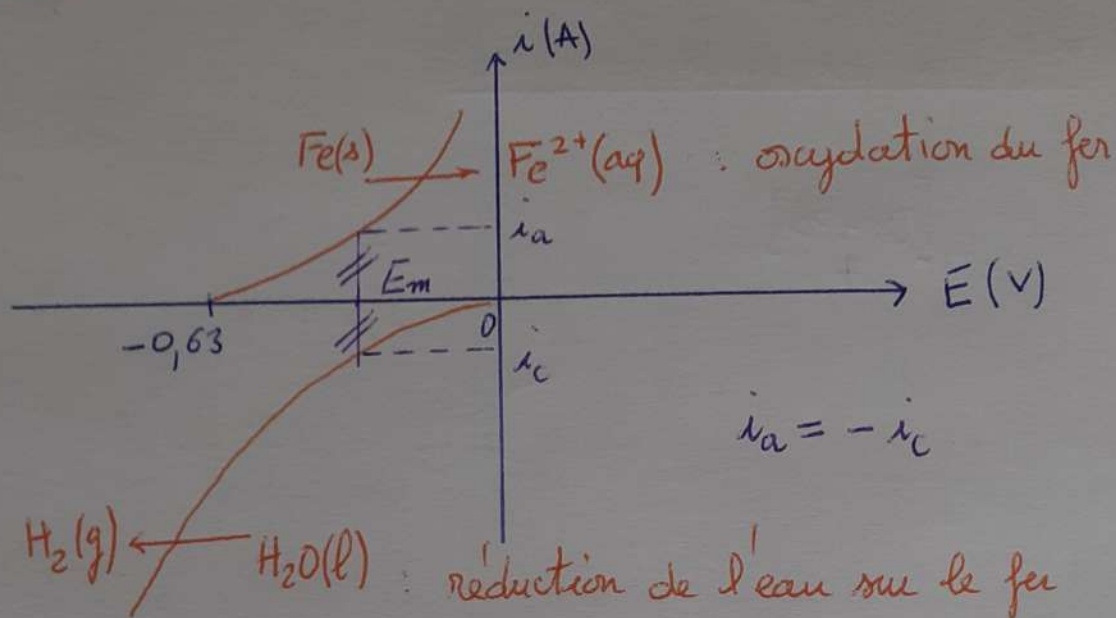 i (A)
Fe(s) → Fe²⁺(aq) : oxydation du fer
i_a
E_m
E (V)
-0,63
0
i_c
i_a = - i_c
H₂(g) ← H₂O(l) : réduction de l'eau sur le fer